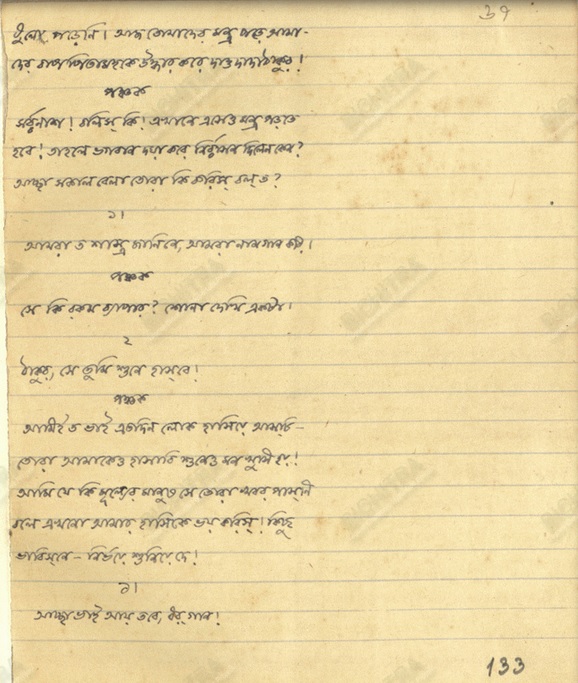 ৩৭
ধুলো পড়েনি। আজ তোমাদের মন্ত্র পড়ে আমা-
দের বাপ পিতামহকে উদ্ধার করে দাও দাদাঠাকুর!
পঞ্চক
সর্ব্বনাশ! বলিস্ কি! এখানেও মন্ত্র পড়তে
হবে! তাহলে ভগবান দয়া করে নির্ব্বাসন দিলেন কেন?
আচ্ছা সকাল বেলা তোরা কি করিস্ বল্ ত?
১।
আমরা ত শাস্ত্র জানিনে, আমরা নামগান করি।
পঞ্চক
সে কি রকম ব্যাপার? শোনা দেখি একটা।
২
ঠাকুর, সে তুমি শুনে হাস্‌বে!
পঞ্চক
আমিই ত ভাই এতদিন লোক হাসিয়ে আসচি—
তোরা আমাকেও হাসাবি শুনেও মন খুসি হয়!
আমি যে কি মূল্যের মানুষ সে তোরা খবর পাস্‌নি
বলে এখনো আমার হাসিকে ভয় করিস্! কিছু
ভাবিস্‌নে— নির্ভয়ে শুনিয়ে দে!
১।
আচ্ছা ভাই আয় তবে, ধর্ গান!
133